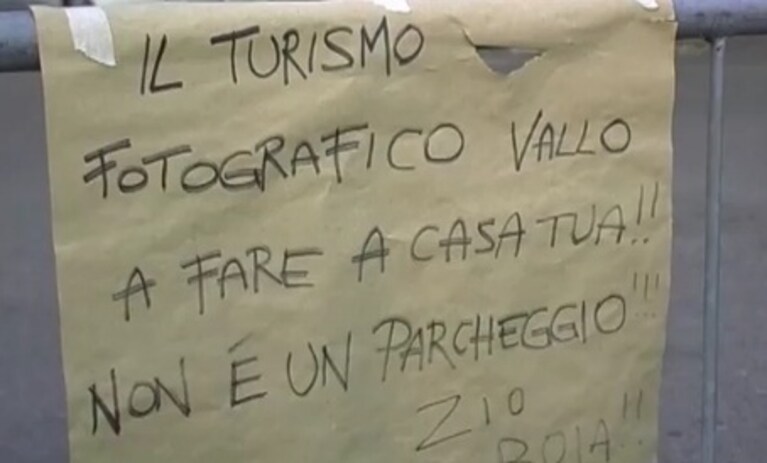 IL TURISMO
FOTOGRAFICO VALLO
A FARE A CASA TUA!!
NON É UN PARCHEGGIO!!!
ZIO
BOIA!!